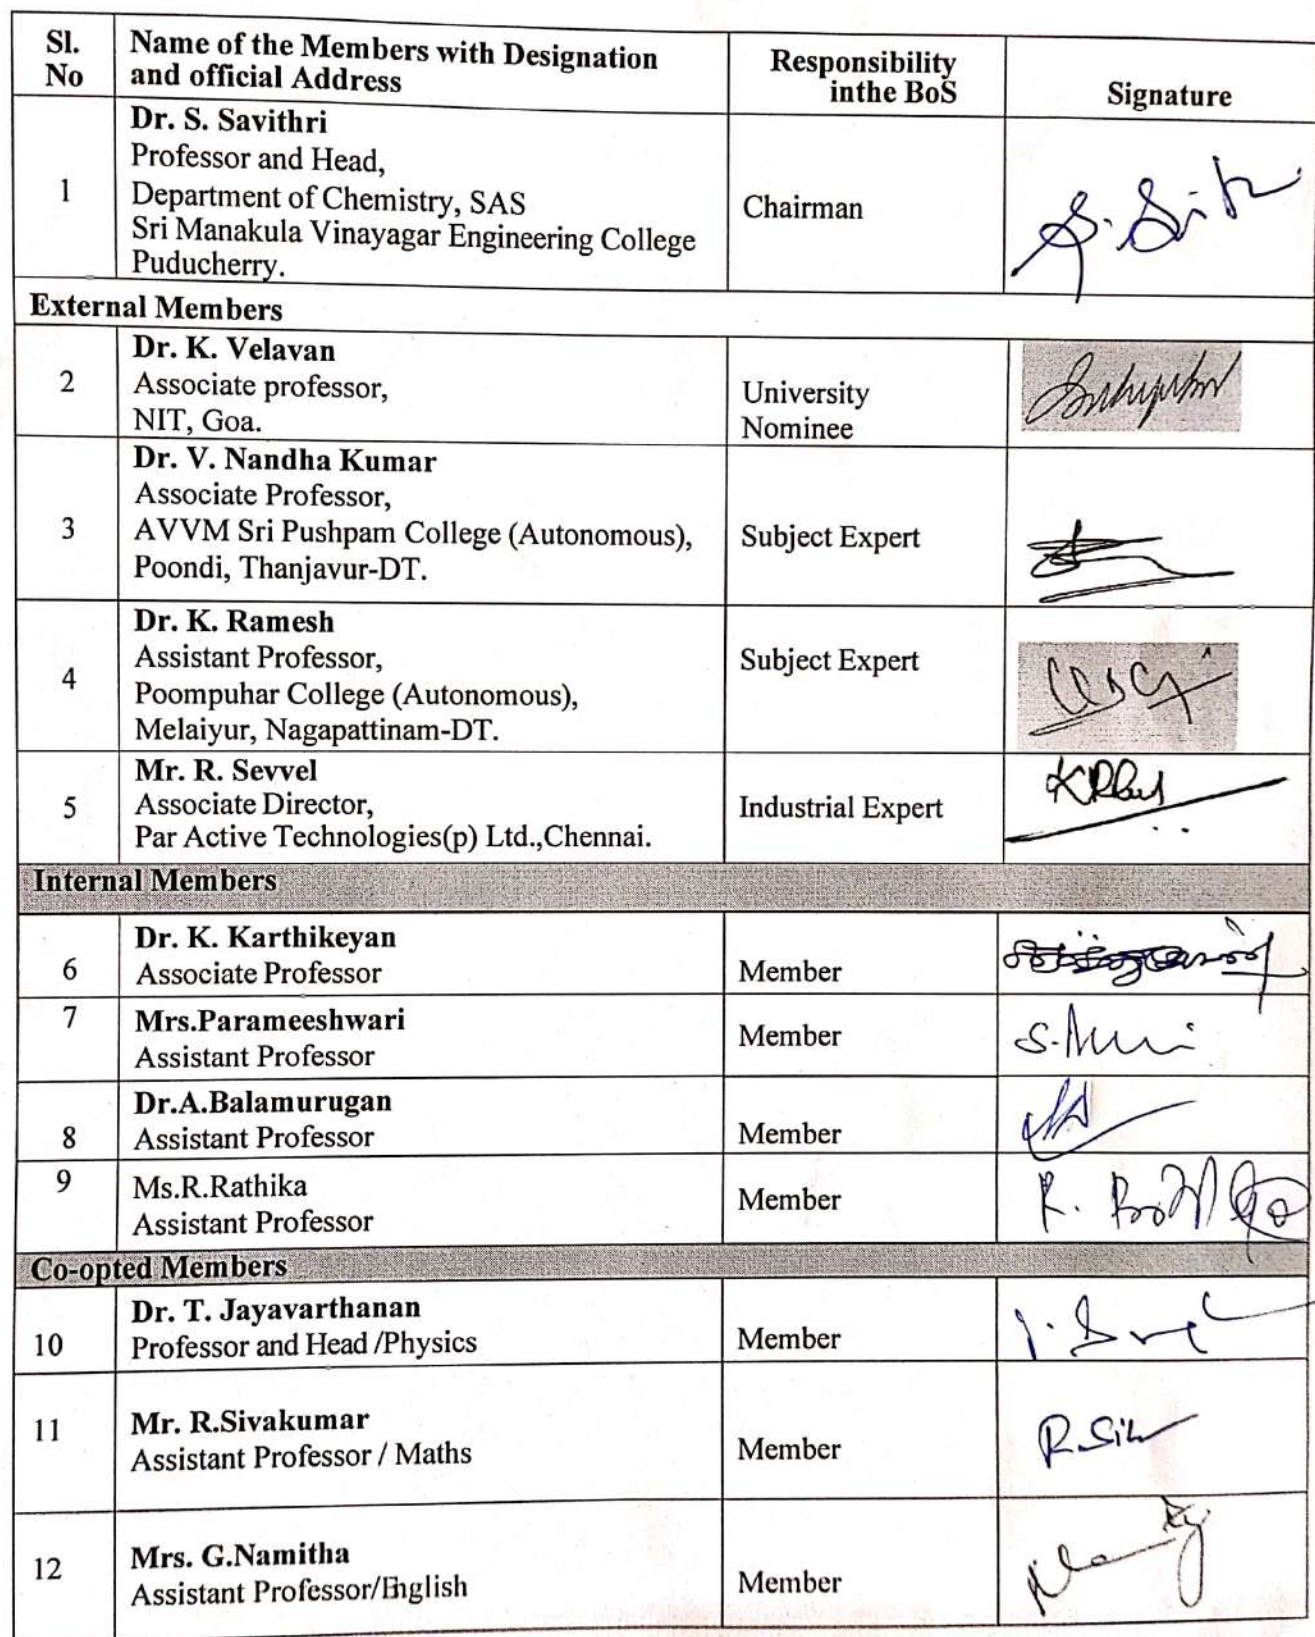 Sl. No
Name of the Members with Designation and official Address
Responsibility inthe BoS
Signature
1
Dr. S. Savithri
Professor and Head,
Department of Chemistry, SAS
Sri Manakula Vinayagar Engineering College
Puducherry.
Chairman
External Members
2
Dr. K. Velavan
Associate professor,
NIT, Goa.
University
Nominee
3
Dr. V. Nandha Kumar
Associate Professor,
AVVM Sri Pushpam College (Autonomous),
Poondi, Thanjavur-DT.
Subject Expert
4
Dr. K. Ramesh
Assistant Professor,
Poompuhar College (Autonomous),
Melaiyur, Nagapattinam-DT.
Subject Expert
5
Mr. R. Sevvel
Associate Director,
Par Active Technologies(p) Ltd.,Chennai.
Industrial Expert
Internal Members
6
Dr. K. Karthikeyan
Associate Professor
Member
7
Mrs.Parameeshwari
Assistant Professor
Member
8
Dr.A.Balamurugan
Assistant Professor
Member
9
Ms.R.Rathika
Assistant Professor
Member
Co-opted Members
10
Dr. T. Jayavarthanan
Professor and Head /Physics
Member
11
Mr. R.Sivakumar
Assistant Professor / Maths
Member
12
Mrs. G.Namitha
Assistant Professor/English
Member